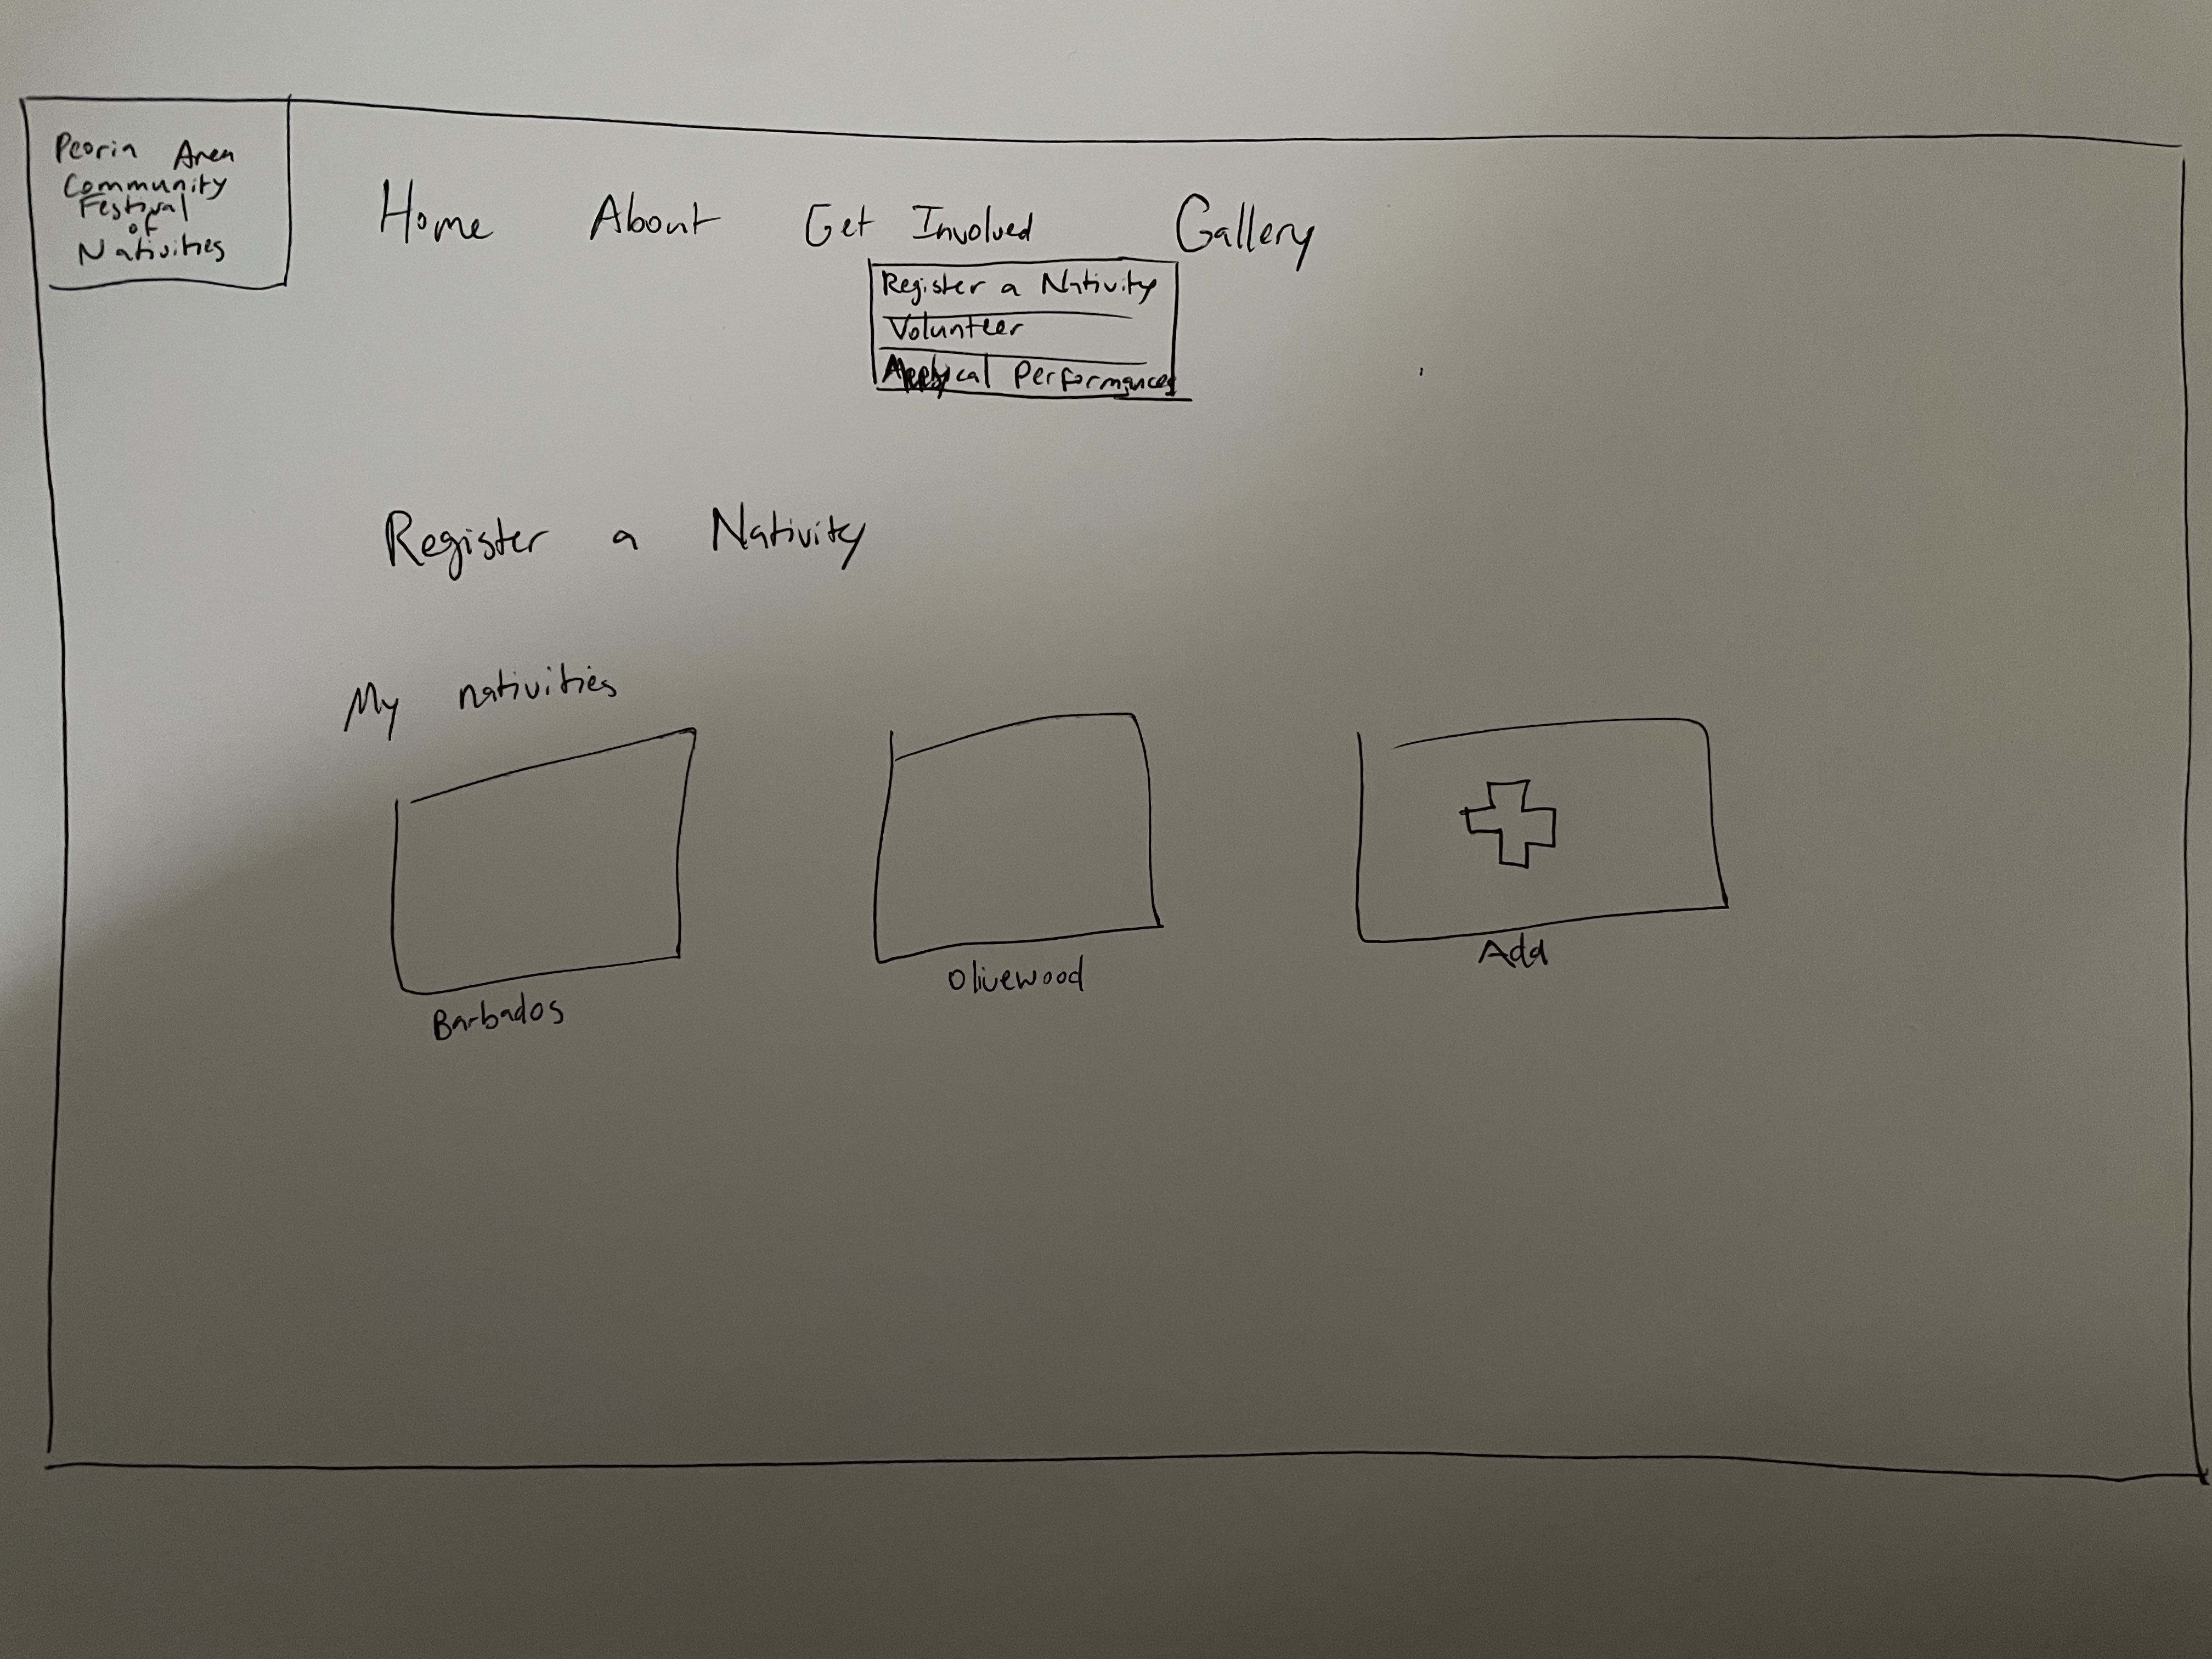 Peoria Area
Community
Festival
of
Nativities
Home About Get Involved Gallery
Register a Nativity
Volunteer
Performances
Register a Nativity
My nativities
Barbados
Olivewood
Add